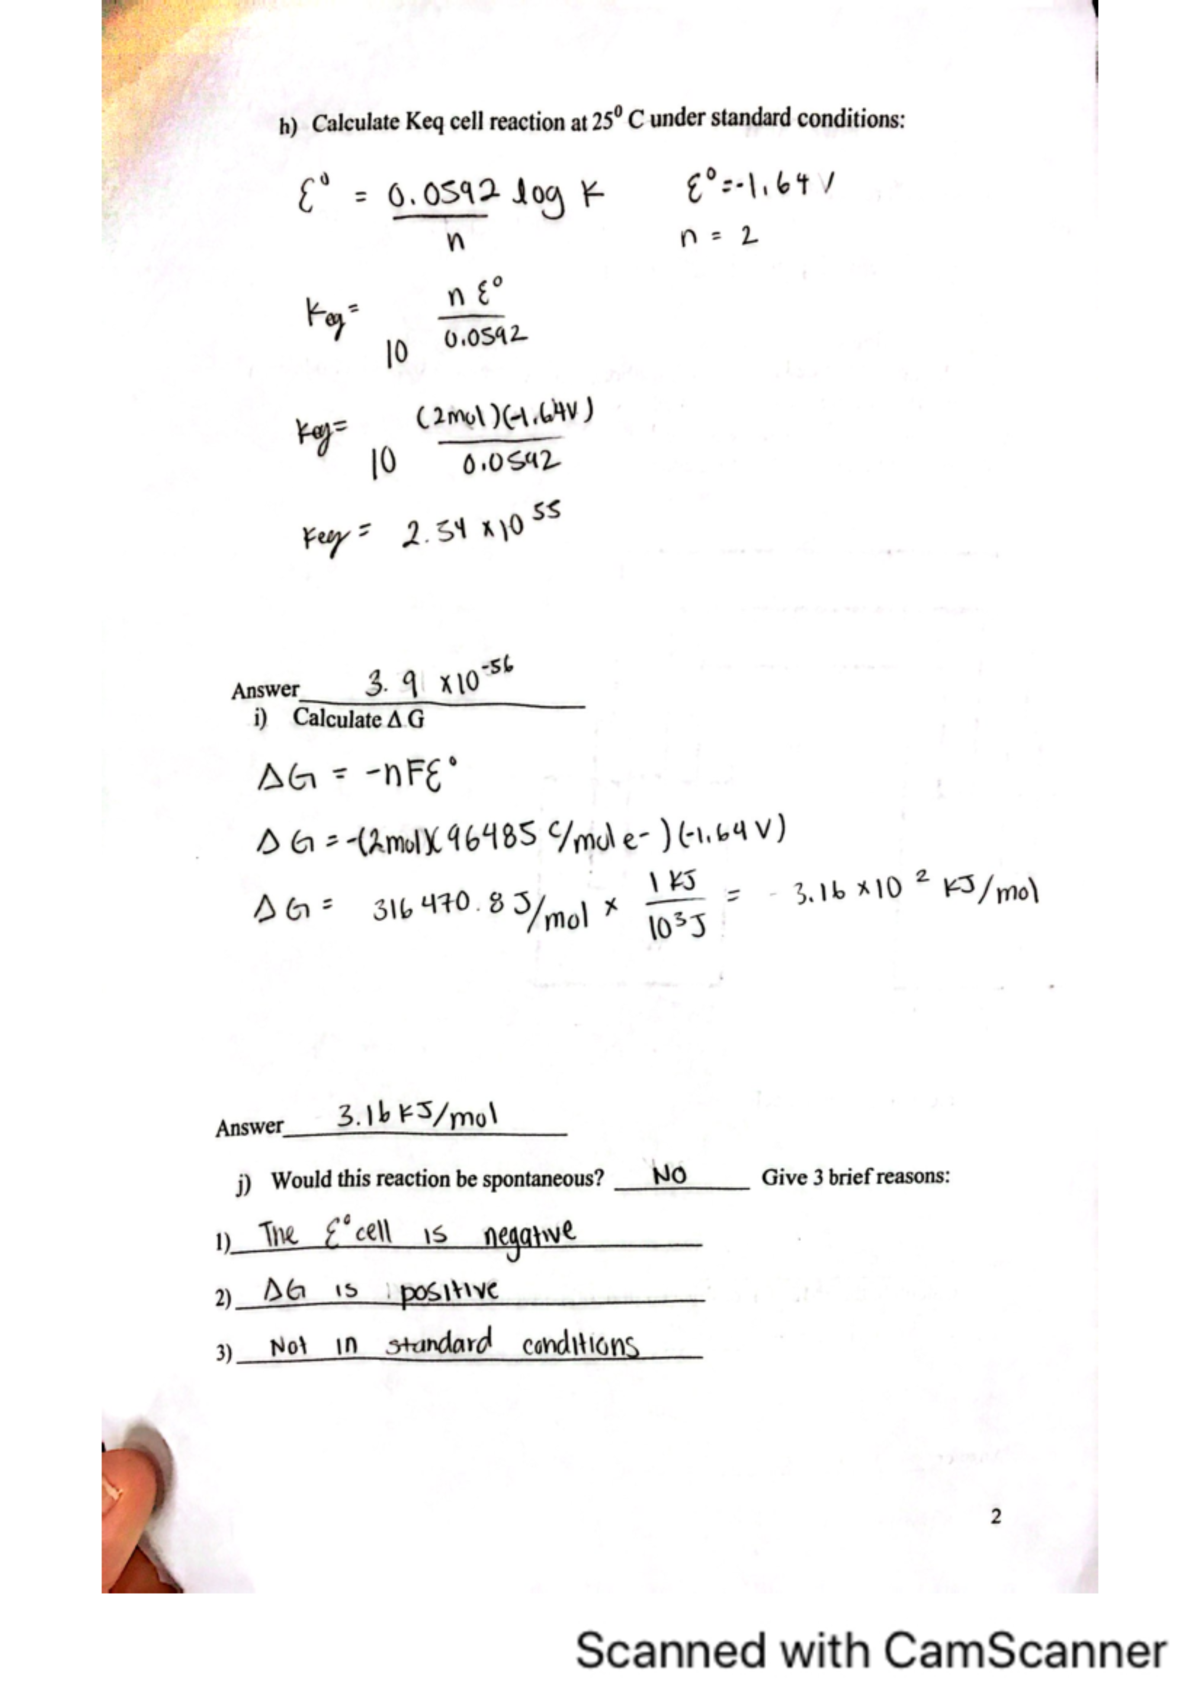 h) Calculate Keq cell reaction at 25⁰ C under standard conditions:
ℰ⁰ = 0.0592 log K / n    ℰ⁰ = -1.64 V
n = 2
Keq = 10^(n ℰ⁰ / 0.0592)
Keq = 10^((2mol)(-1.64V) / 0.0592)
Keq = 2.54 x 10^55
Answer 3.91 x 10^-56
i) Calculate Δ G
ΔG = -nFℰ°
ΔG = -(2mol)(96485 C/mol e-)(-1.64 V)
ΔG = 316 470.8 J/mol x 1 KJ / 10³ J = 3.16 x 10² KJ/mol
Answer 3.16 KJ/mol
j) Would this reaction be spontaneous? NO Give 3 brief reasons:
1) The ℰ° cell is negative
2) ΔG is positive
3) Not in standard conditions
2
Scanned with CamScanner